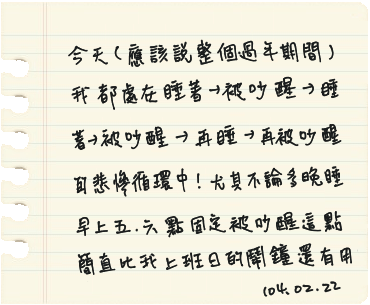 今天(應該說整個過年期間)
我都處在睡著→被吵醒→睡
著→被吵醒→再睡→再被吵醒
的悲慘循環中!尤其不論多晚睡
早上五.六點固定被吵醒這點
簡直比我上班日的鬧鐘還有用
104.02.22